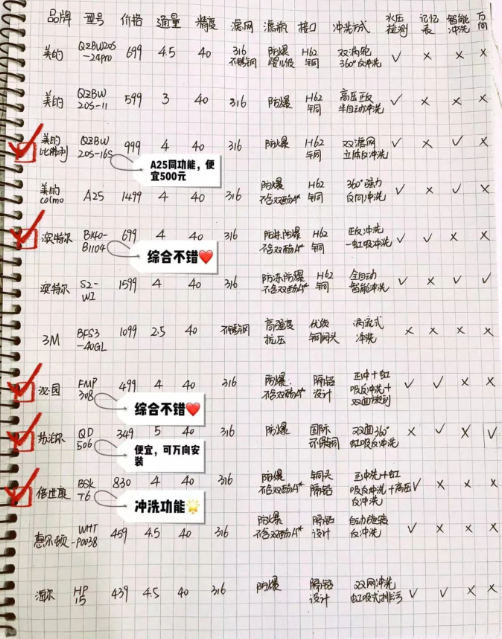 品牌 型号 价格 通量 精度 滤网 滤瓶 接口 冲洗方式 水压检测 记忆表 智能冲洗 万向
美的 QZBW20S-24pro 699 4.5 40 316不锈钢 防爆 H62铜 双涡轮360°反冲洗 ✓ × × ×
美的 QZBW20S-11 599 3 40 316 防爆 H62铜 高压正反半自动冲洗 ✓ × × ×
美的比佛利 QZBW20S-16S 999 4 40 316 防爆 H62铜 双滤网立体反冲洗 ✓ × ✓ ×
A25同功能，便宜500元
美的colmo A25 1499 4 40 316 防爆不含双酚A* H62铜 360°强力反向冲洗 ✓ × ✓ ×
滨特尔 B140-B1104 699 4 40 316 防冻.防爆不含双酚A* H62铜 正反冲洗虹吸冲洗 ✓ ✓ × ×
综合不错❤
滨特尔 S2-W1 1599 4 40 316 防冻.防爆不含双酚A* H62铜 全自动智能冲洗 ✓ × ✓ ✓
3M BFS3-40GL 1099 2.5 40 不锈钢 高强度抗压 优质铜阀头 涡流式冲洗 × × × ×
沁园 FMP308 499 4 40 316 防爆.不含双酚A* 隔铅设计 正冲+虹吸反冲洗+双面 ✓ ✓ × ×
综合不错❤
QD506 349 5 40 316 防爆 国际不锈钢 双面360°虹吸反冲洗 ✓ × × ✓
便宜，可万向安装
倍世 BSK T6 830 4 40 316 防爆不含双酚A* 铜头隔铅 正冲洗+虹吸反冲洗+高压反冲洗 ✓ ✓ × ×
冲洗功能🌟
惠尔顿 WHT-P0038 459 4.5 40 316 防爆不含双酚A* 隔铅设计 自动旋转反冲洗 ✓ × × ×
海尔 HP15 439 4.5 40 316 防爆 隔铅设计 双网冲洗虹吸式排污 ✓ ✓ × ×